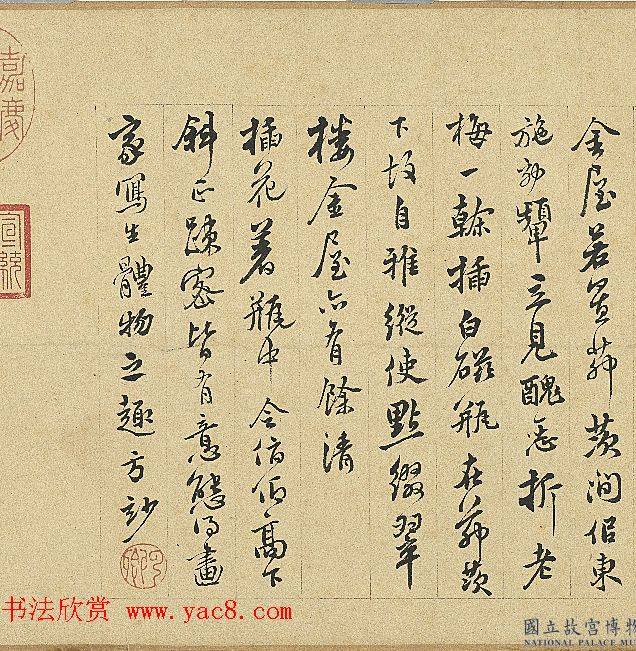 金屋若置茆茨澗佀東
施效顰立見醜惡折老
梅一榦插白磁瓶在茆茨
下故自雅縱使點綴翠
樓金屋亦有餘清
插花著瓶中令俯仰高下
斜正踈密皆有意態得畫
家寫生體物之趣方妙
嘉慶
宣統
书法欣赏 www.yac8.com
國立故宮博物
NATIONAL PALACE MU